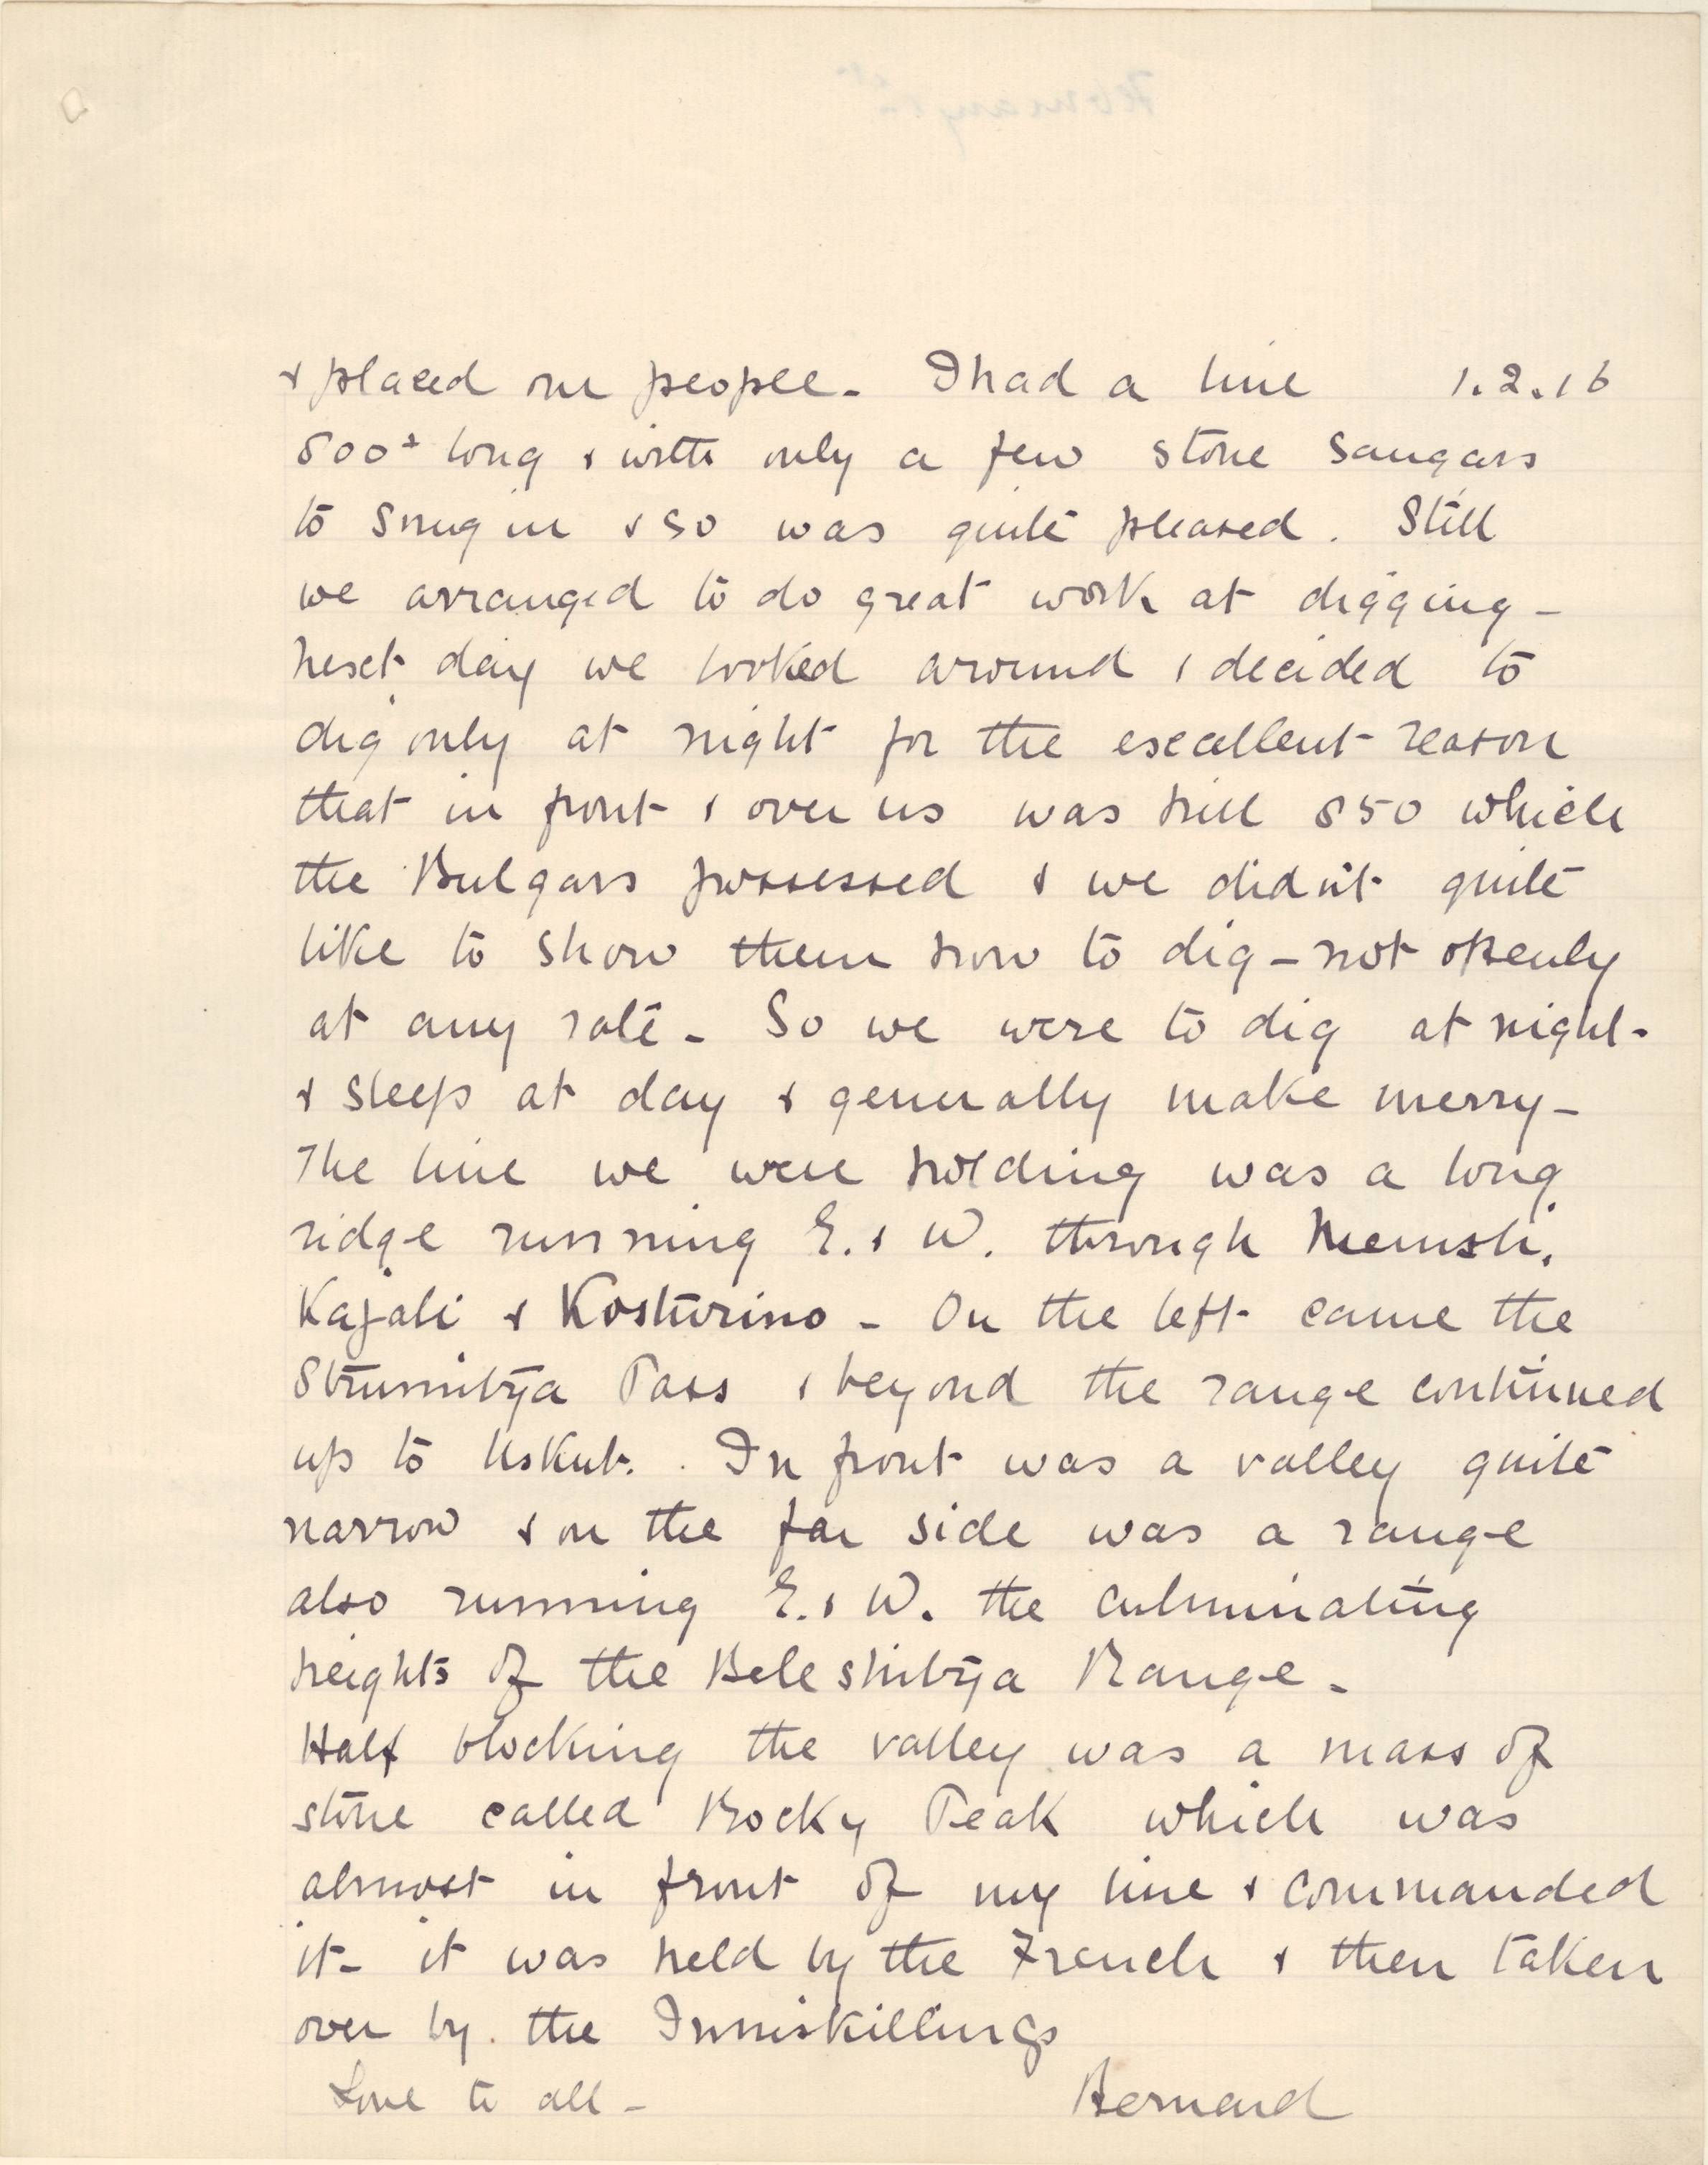 & placed our people. I had a line 1.2.16
800ˣ long & with only a few stone sangars
to snug in & so was quite pleased. Still
we arranged to do great work at digging –
next day we looked around & decided to
dig only at night for the excellent reason
that in front & over us was hill 850 which
the Bulgars possessed & we didn't quite
like to show them how to dig – not openly
at any rate – So we were to dig at night –
& sleep at day & generally make merry –
The line we were holding was a long
ridge running E. & W. through Memsli.
Kajali & Kosturino – On the left came the
Strumitza Pass & beyond the range continued
up to Uskub. In front was a valley quite
narrow & on the far side was a range
also running E. & W. the culminating
heights of the Beleshitza Range –
Half blocking the valley was a mass of
stone called Rocky Peak which was
almost in front of my line & commanded
it – it was held by the French & then taken
over by the Inniskillings
Love to all – Bernard